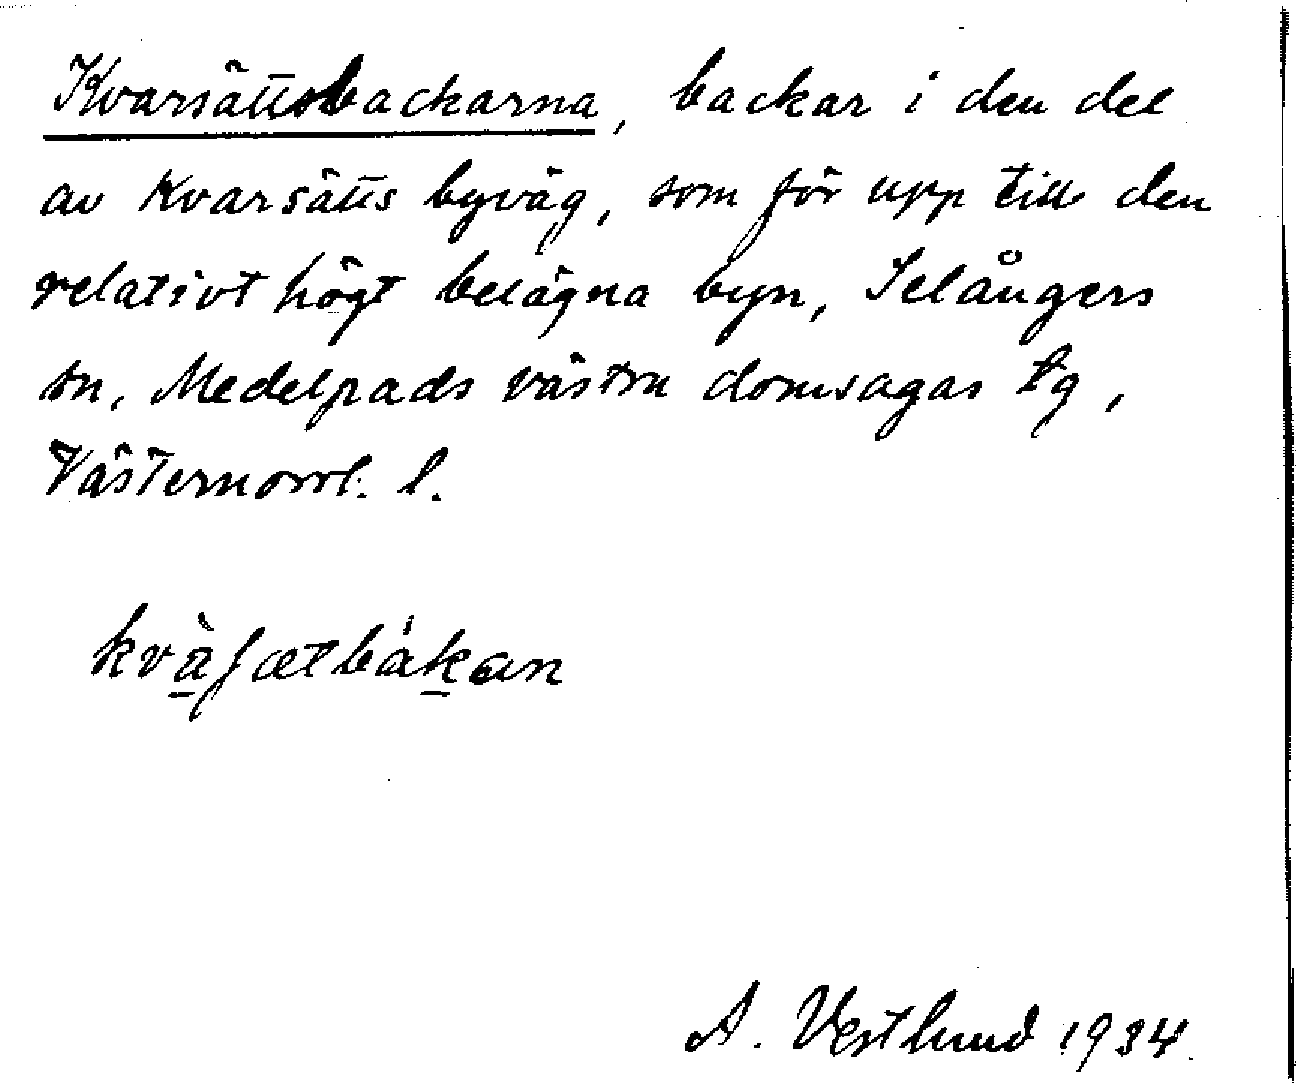 Kvarsättsbackarna, backar i den del
av Kvarsätts byväg, som för upp till den
relativt högt belägna byn, Selångers
sn, Medelpads västra domsagas tg,
Västernorrl. l.
kvàʃætbákan
A. Vestlund 1934.